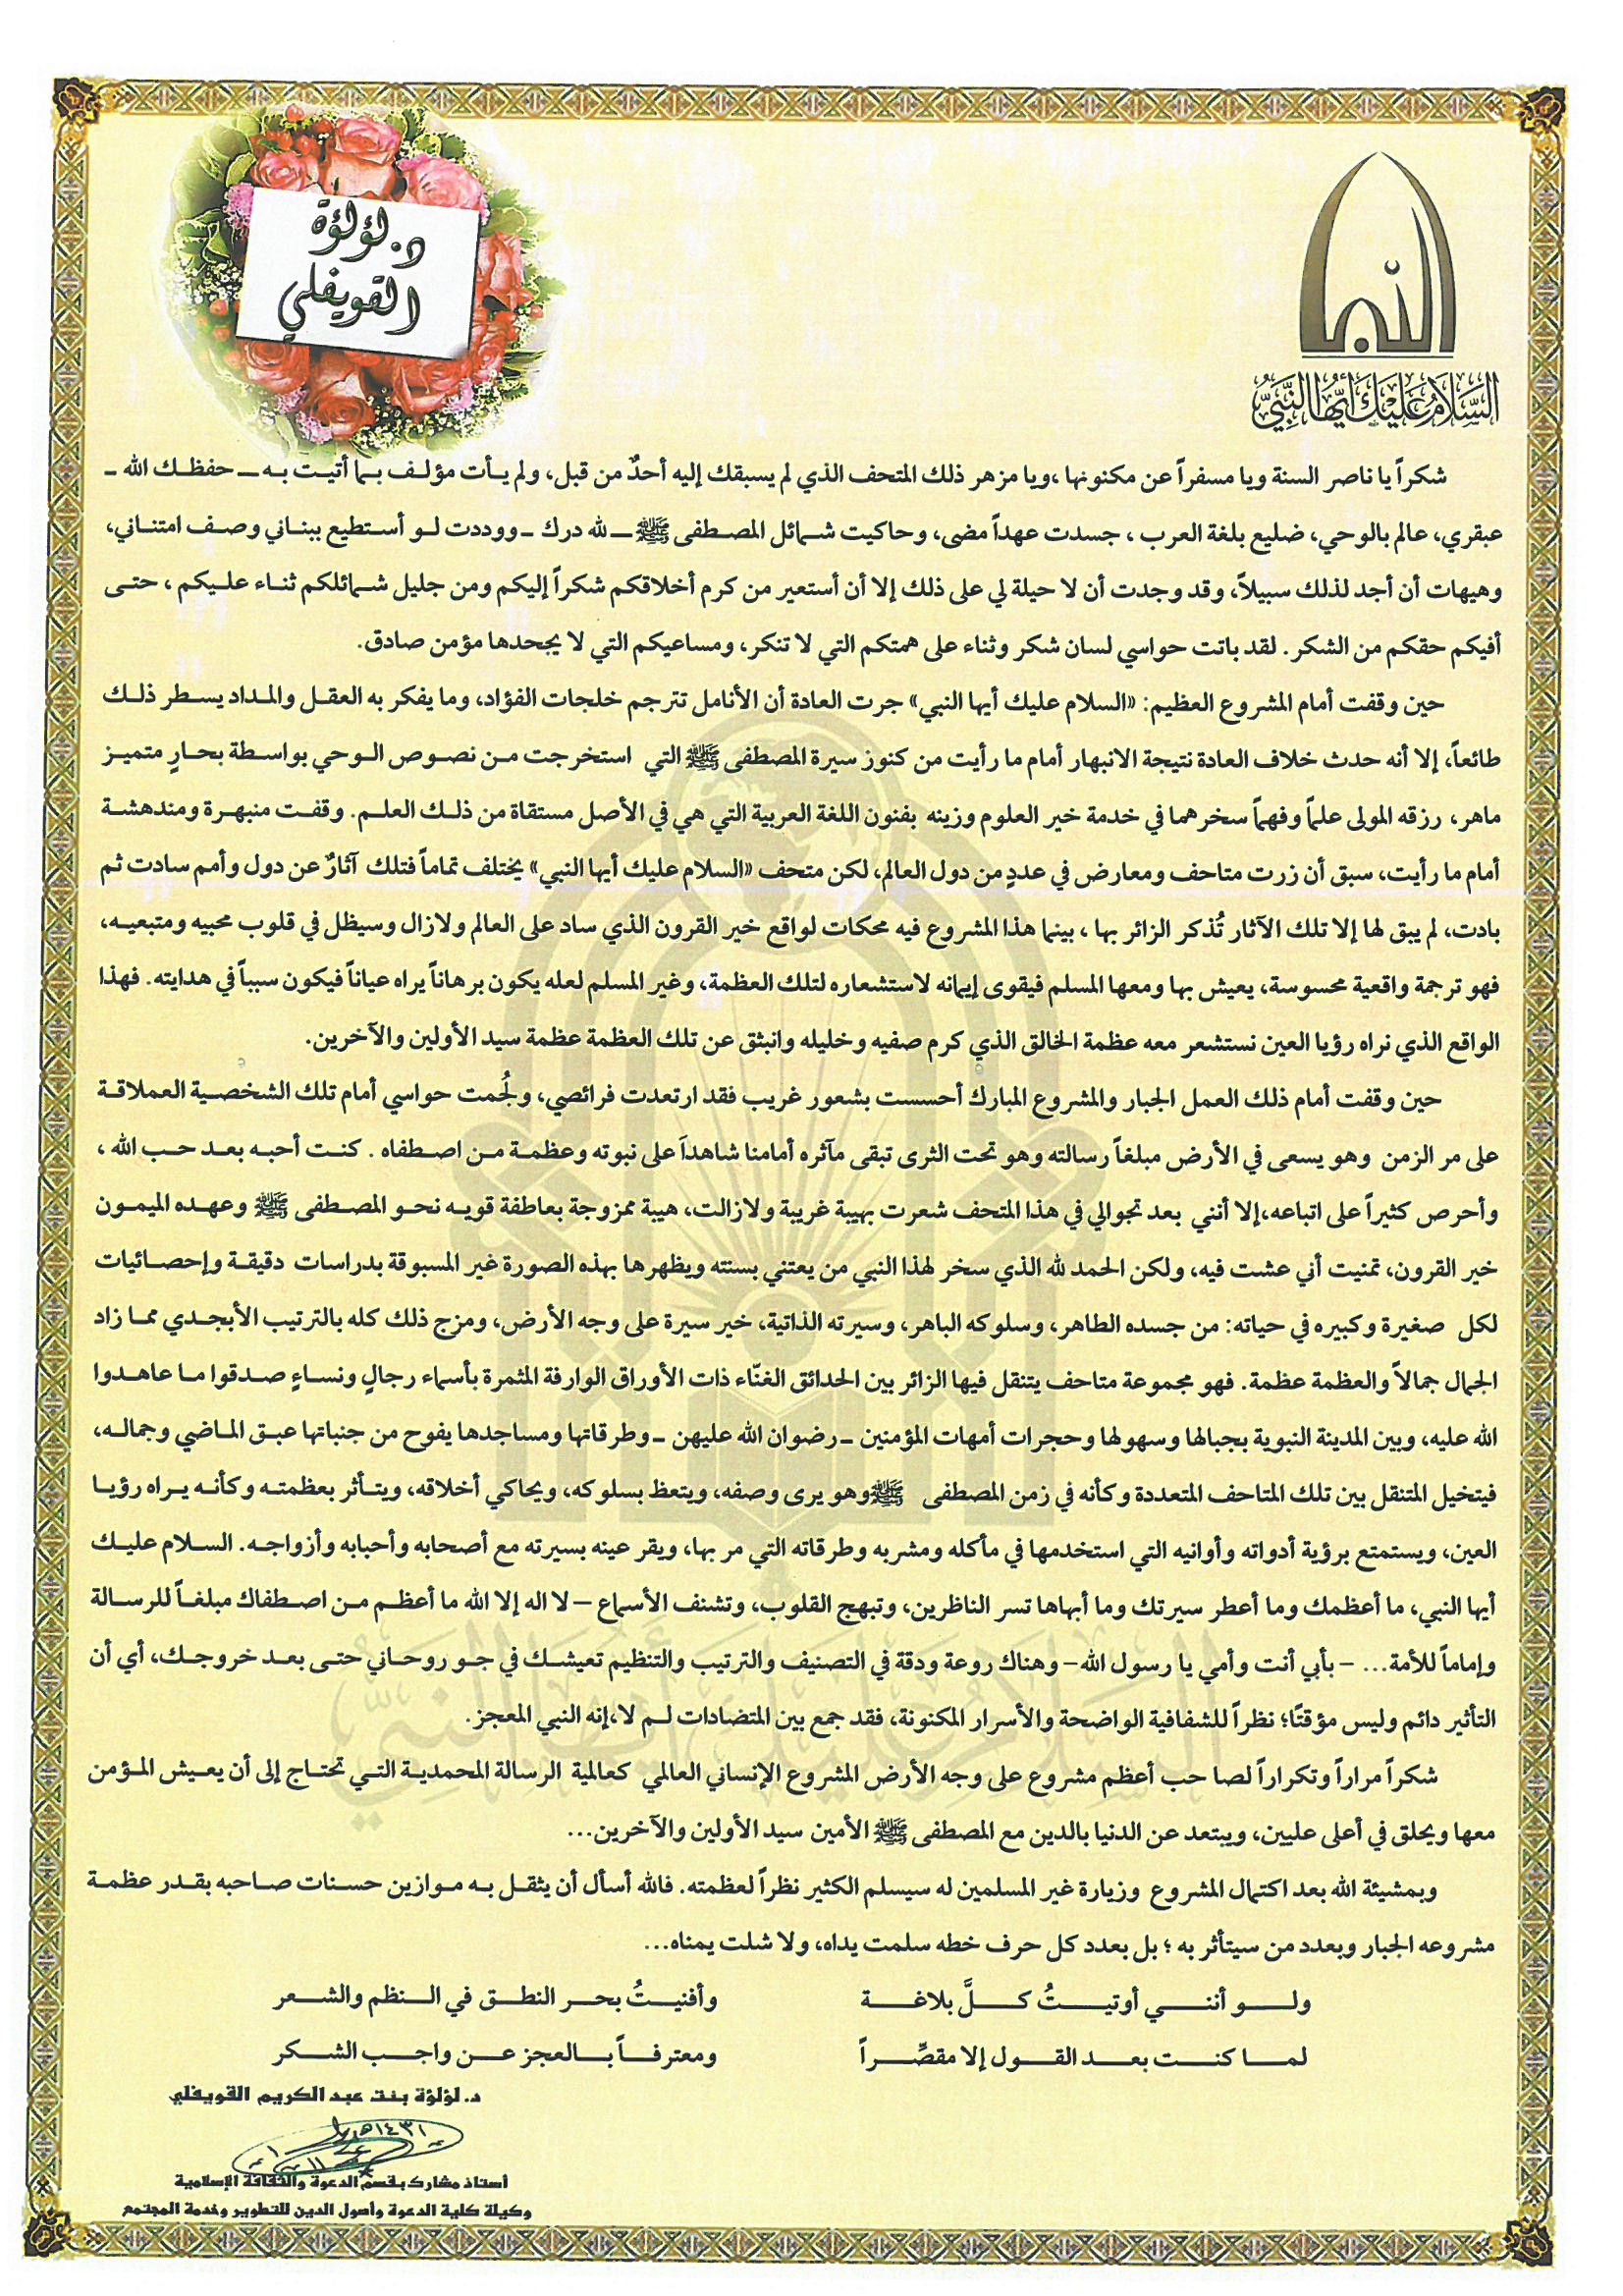 د. لؤلؤة
القويفلي
السَّلَامُ عَلَيْكَ أَيُّهَا النَّبِيُّ
شكراً يا ناصر السنة ويا مسفراً عن مكنونها ،ويا مزهر ذلك المتحف الذي لم يسبقك إليه أحدٌ من قبل، ولم يأت مؤلف بما أتيت به – حفظك الله –
عبقري، عالم بالوحي، ضليع بلغة العرب ، جسدت عهداً مضى، وحاكيت شمائل المصطفى ﷺ – لله درك – ووددت لو أستطيع ببناني وصف امتناني،
وهيهات أن أجد لذلك سبيلاً، وقد وجدت أن لا حيلة لي على ذلك إلا أن أستعير من كرم أخلاقكم شكراً إليكم ومن جليل شمائلكم ثناء عليكم ، حتى
أفيكم حقكم من الشكر. لقد باتت حواسي لسان شكر وثناء على همتكم التي لا تنكر، ومساعيكم التي لا يجحدها مؤمن صادق.
حين وقفت أمام المشروع العظيم: «السلام عليك أيها النبي» جرت العادة أن الأنامل تترجم خلجات الفؤاد، وما يفكر به العقل والمداد يسطر ذلك
طائعاً، إلا أنه حدث خلاف العادة نتيجة الانبهار أمام ما رأيت من كنوز سيرة المصطفى ﷺ التي استخرجت من نصوص الوحي بواسطة بحارٍ متميز
ماهر، رزقه المولى علماً وفهماً سخرهما في خدمة خير العلوم وزينه بفنون اللغة العربية التي هي في الأصل مستقاة من ذلك العلم. وقفت منبهرة ومندهشة
أمام ما رأيت، سبق أن زرت متاحف ومعارض في عددٍ من دول العالم، لكن متحف «السلام عليك أيها النبي» يختلف تماماً فتلك آثارٌ عن دول وأمم سادت ثم
بادت، لم يبق لها إلا تلك الآثار تُذكر الزائر بها ، بينما هذا المشروع فيه محكات لواقع خير القرون الذي ساد على العالم ولازال وسيظل في قلوب محبيه ومتبعيه،
فهو ترجمة واقعية محسوسة، يعيش بها ومعها المسلم فيقوى إيمانه لاستشعاره لتلك العظمة، وغير المسلم لعله يكون برهاناً يراه عياناً فيكون سبباً في هدايته. فهذا
الواقع الذي نراه رؤيا العين نستشعر معه عظمة الخالق الذي كرم صفيه وخليله وانبثق عن تلك العظمة عظمة سيد الأولين والآخرين.
حين وقفت أمام ذلك العمل الجبار والمشروع المبارك أحسست بشعور غريب فقد ارتعدت فرائصي، ولُجمت حواسي أمام تلك الشخصية العملاقة
على مر الزمن وهو يسعى في الأرض مبلغاً رسالته وهو تحت الثرى تبقى مآثره أمامنا شاهداً على نبوته وعظمة من اصطفاه . كنت أحبه بعد حب الله ،
وأحرص كثيراً على اتباعه،إلا أنني بعد تجوالي في هذا المتحف شعرت بهيبة غريبة ولازالت، هيبة ممزوجة بعاطفة قويه نحو المصطفى ﷺ وعهده الميمون
خير القرون، تمنيت أني عشت فيه، ولكن الحمد لله الذي سخر لهذا النبي من يعتني بسنته ويظهرها بهذه الصورة غير المسبوقة بدراسات دقيقة وإحصائيات
لكل صغيرة وكبيره في حياته: من جسده الطاهر، وسلوكه الباهر، وسيرته الذاتية، خير سيرة على وجه الأرض، ومزج ذلك كله بالترتيب الأبجدي مما زاد
الجمال جمالاً والعظمة عظمة. فهو مجموعة متاحف يتنقل فيها الزائر بين الحدائق الغنّاء ذات الأوراق الوارفة المثمرة بأسماء رجالٍ ونساءٍ صدقوا ما عاهدوا
الله عليه، وبين المدينة النبوية بجبالها وسهولها وحجرات أمهات المؤمنين – رضوان الله عليهن – وطرقاتها ومساجدها يفوح من جنباتها عبق الماضي وجماله،
فيتخيل المتنقل بين تلك المتاحف المتعددة وكأنه في زمن المصطفى ﷺ وهو يرى وصفه، ويتعظ بسلوكه، ويحاكي أخلاقه، ويتأثر بعظمته وكأنه يراه رؤيا
العين، ويستمتع برؤية أدواته وأوانيه التي استخدمها في مأكله ومشربه وطرقاته التي مر بها، ويقر عينه بسيرته مع أصحابه وأحبابه وأزواجه. السلام عليك
أيها النبي، ما أعظمك وما أعطر سيرتك وما أبهاها تسر الناظرين، وتبهج القلوب، وتشنف الأسماع – لا اله إلا الله ما أعظم من اصطفاك مبلغاً للرسالة
وإماماً للأمة... – بأبي أنت وأمي يا رسول الله – وهناك روعة ودقة في التصنيف والترتيب والتنظيم تعيشك في جو روحاني حتى بعد خروجك، أي أن
التأثير دائم وليس مؤقتًا؛ نظراً للشفافية الواضحة والأسرار المكنونة، فقد جمع بين المتضادات لم لا،إنه النبي المعجز.
شكراً مراراً وتكراراً لصا حب أعظم مشروع على وجه الأرض المشروع الإنساني العالمي كعالمية الرسالة المحمدية التي تحتاج إلى أن يعيش المؤمن
معها ويحلق في أعلى عليين، ويبتعد عن الدنيا بالدين مع المصطفى ﷺ الأمين سيد الأولين والآخرين...
وبمشيئة الله بعد اكتمال المشروع وزيارة غير المسلمين له سيسلم الكثير نظراً لعظمته. فالله أسأل أن يثقل به موازين حسنات صاحبه بقدر عظمة
مشروعه الجبار وبعدد من سيتأثر به ؛ بل بعدد كل حرف خطه سلمت يداه، ولا شلت يمناه...
ولو أنني أوتيتُ كلَّ بلاغة وأفنيتُ بحر النطق في النظم والشعر
لما كنت بعد القول إلا مقصِّراً ومعترفاً بالعجز عن واجب الشكر
د. لؤلؤة بنت عبد الكريم القويفلي
أستاذ مشارك بقسم الدعوة والثقافة الإسلامية
وكيلة كلية الدعوة وأصول الدين للتطوير وخدمة المجتمع